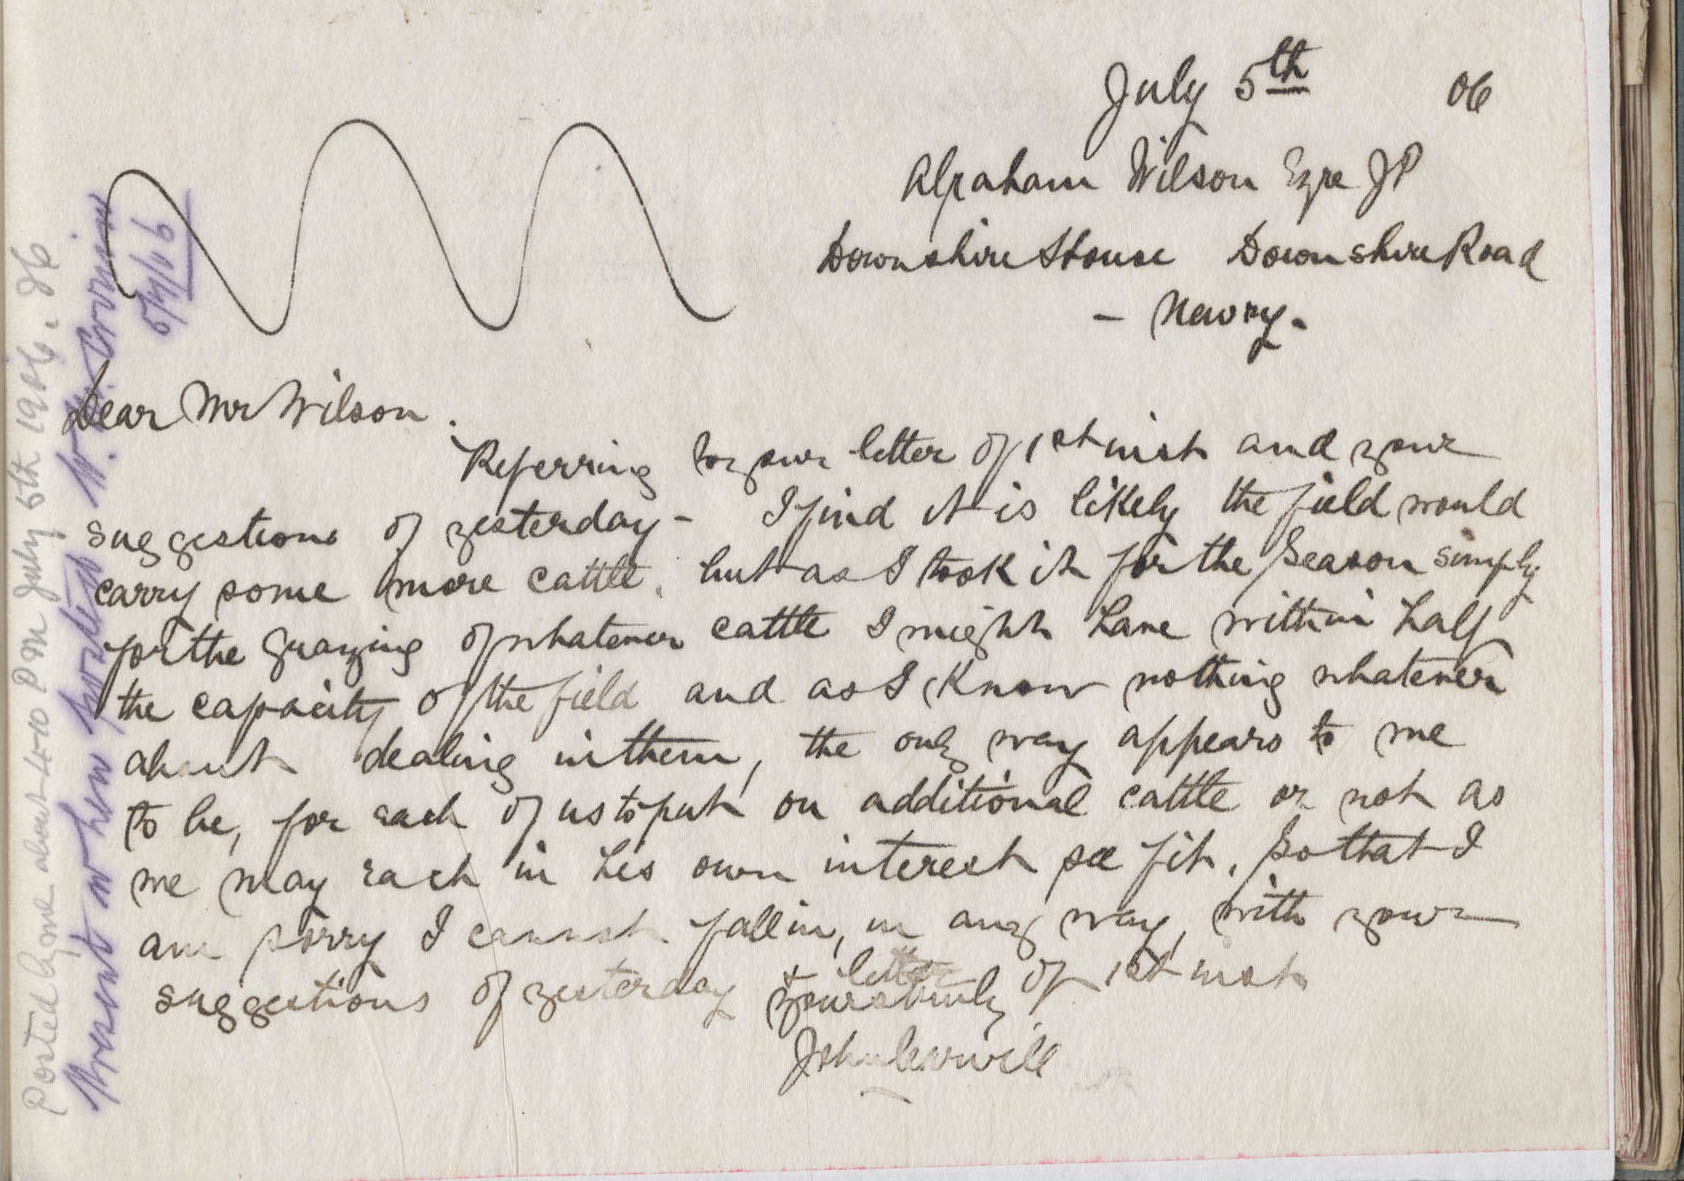 July 5th 06
Abraham Wilson Esqre JP
Downshire House Downshire Road
- Newry.
Dear Mr Wilson.
Referring to your letter of 1st inst and your
suggestions of yesterday - I find it is likely the field would
carry some more cattle, but as I took it for the Season simply
for the grazing of whatever cattle I might have within half
the capacity of the field and as I Know nothing whatever
about dealing in them, the only way appears to me
to be, for each of us to put on additional cattle or not as
we may each in his own interest see fit. So that I
am sorry I cannot fall in, in any way, with your
suggestions of yesterday & letter of 1st inst
yours truly
John
Posted by me about 4.40 PM July 5th 1906.
Present when posted W. 
5/7/06